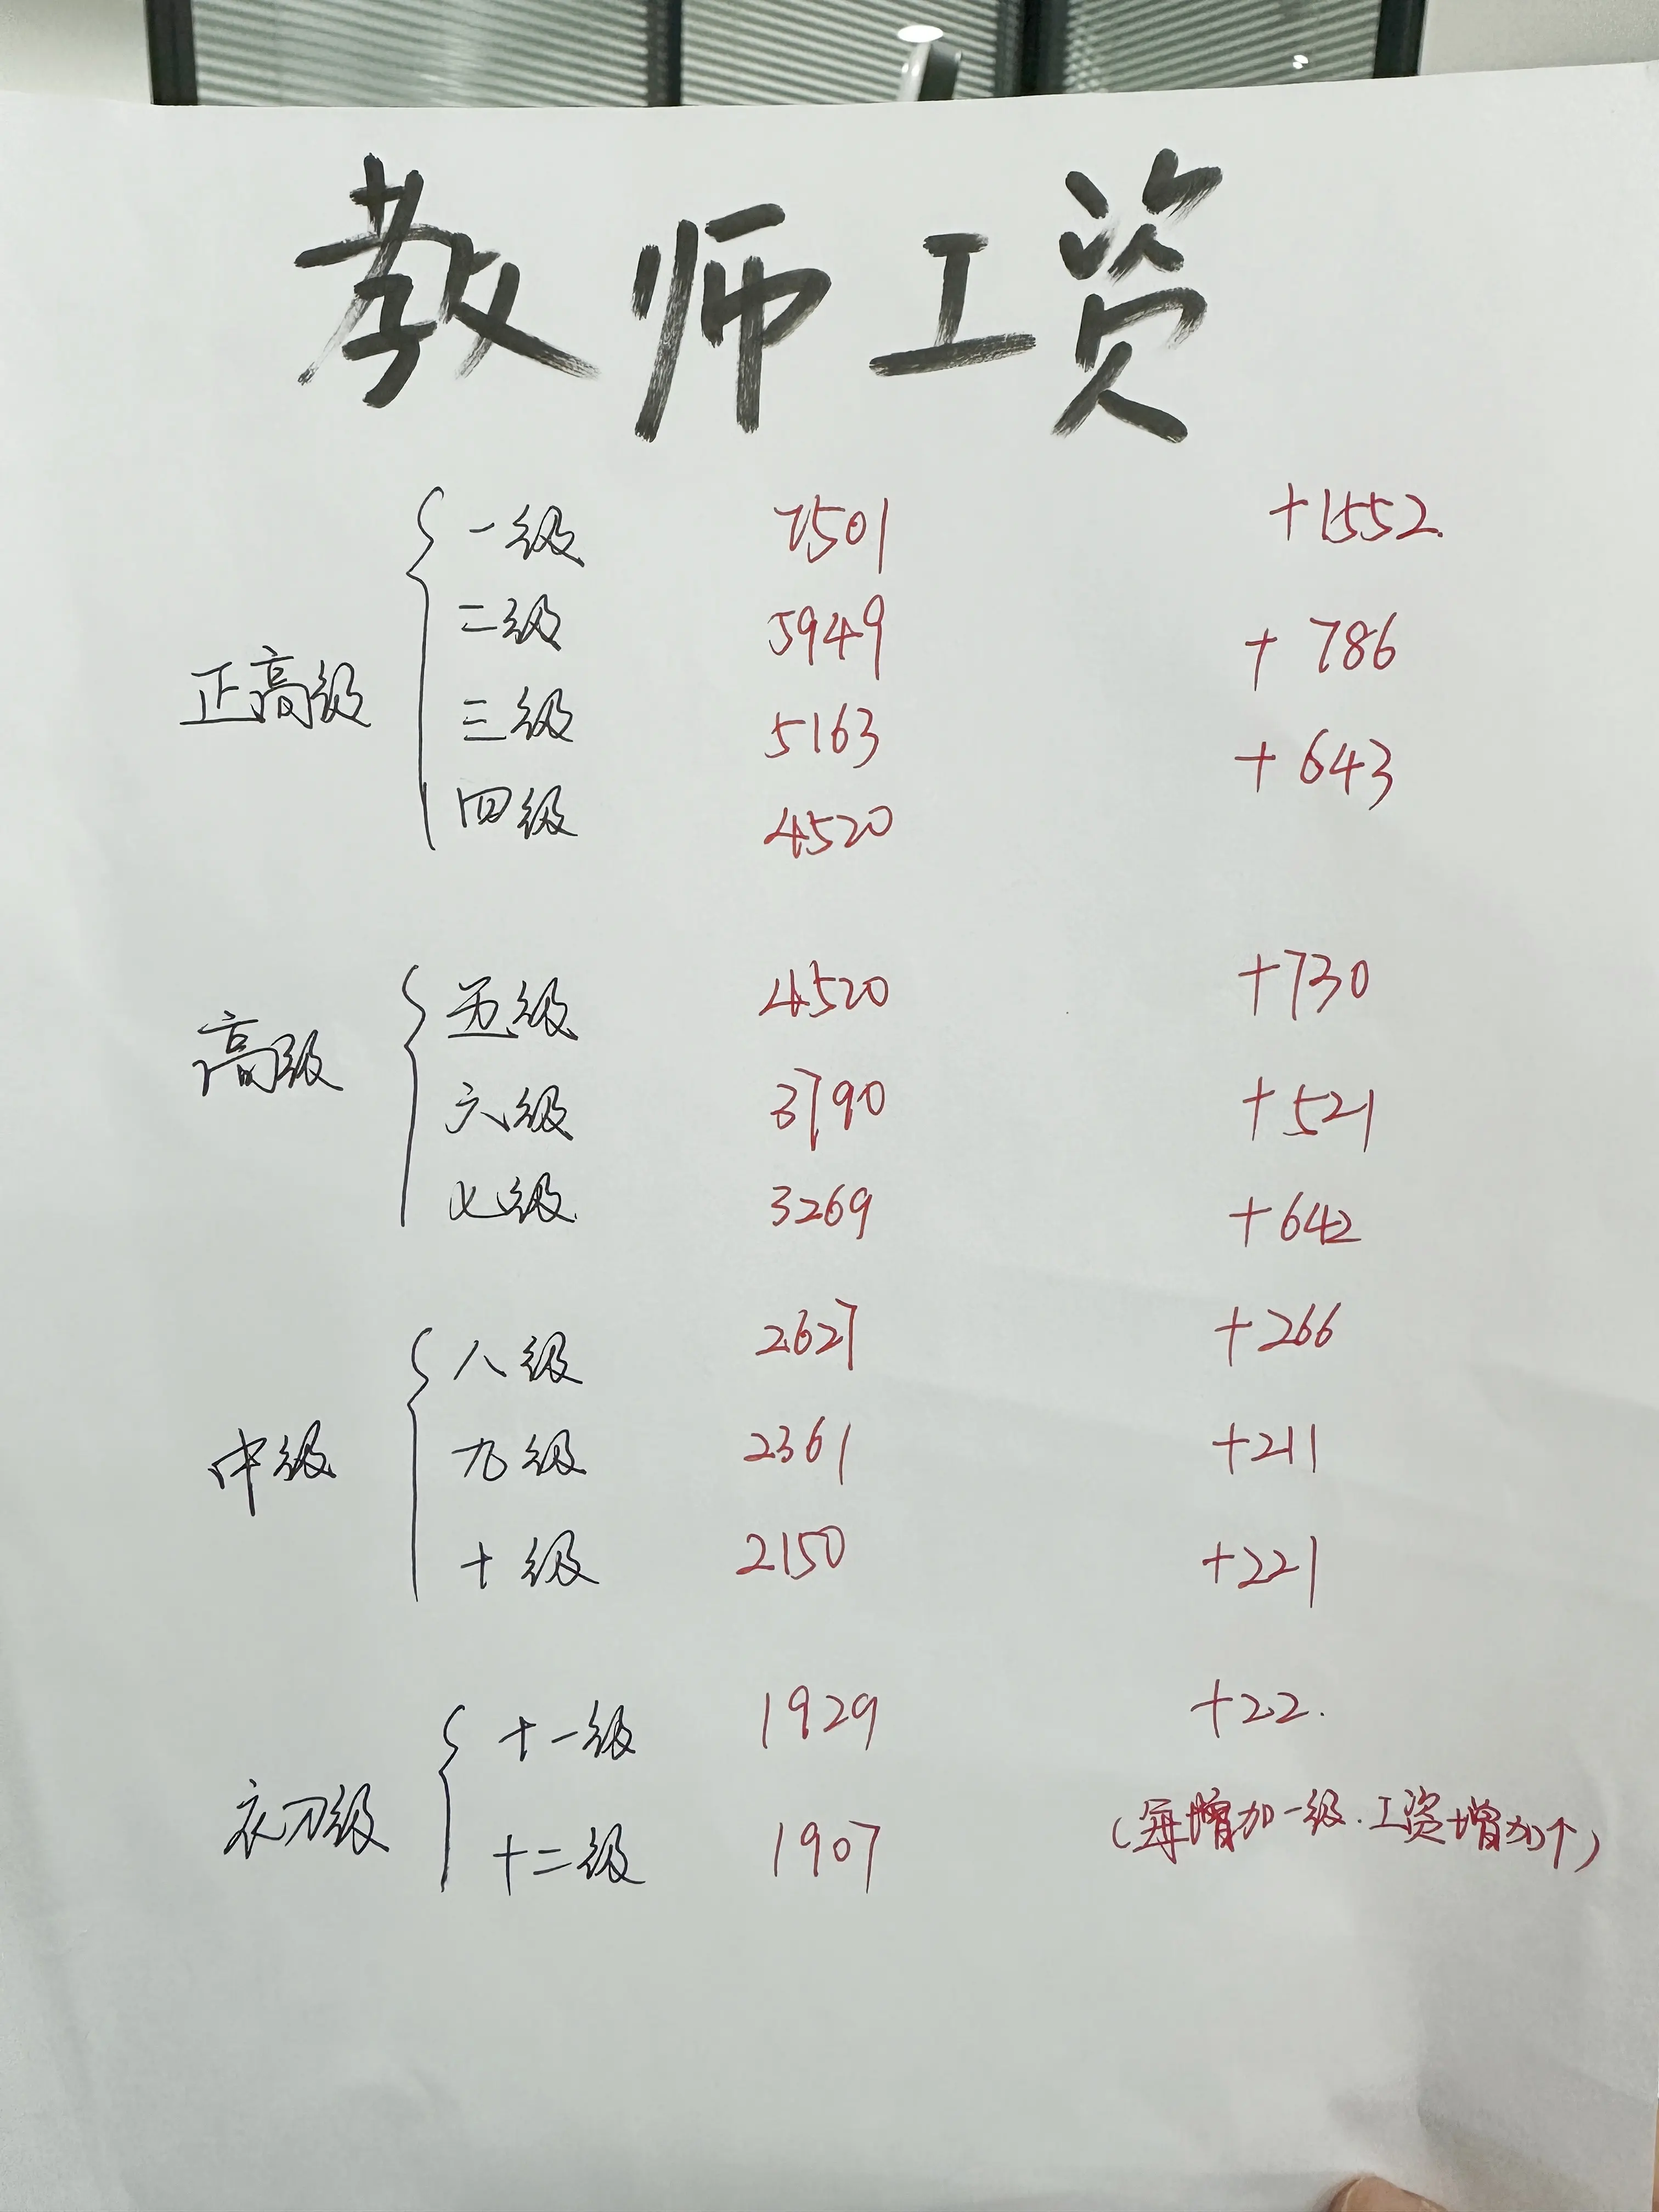 教师工资
一级 7501 +1552.
二级 5949 + 786
正高级
三级 5163 + 643
四级 4520
五级 4520 +730
高级
六级 3790 +521
七级 3269 +642
八级 2627 +266
中级
九级 2361 +211
十级 2150 +221
十一级 1929 +22.
初级
十二级 1907
(每增加一级.工资增加↑)